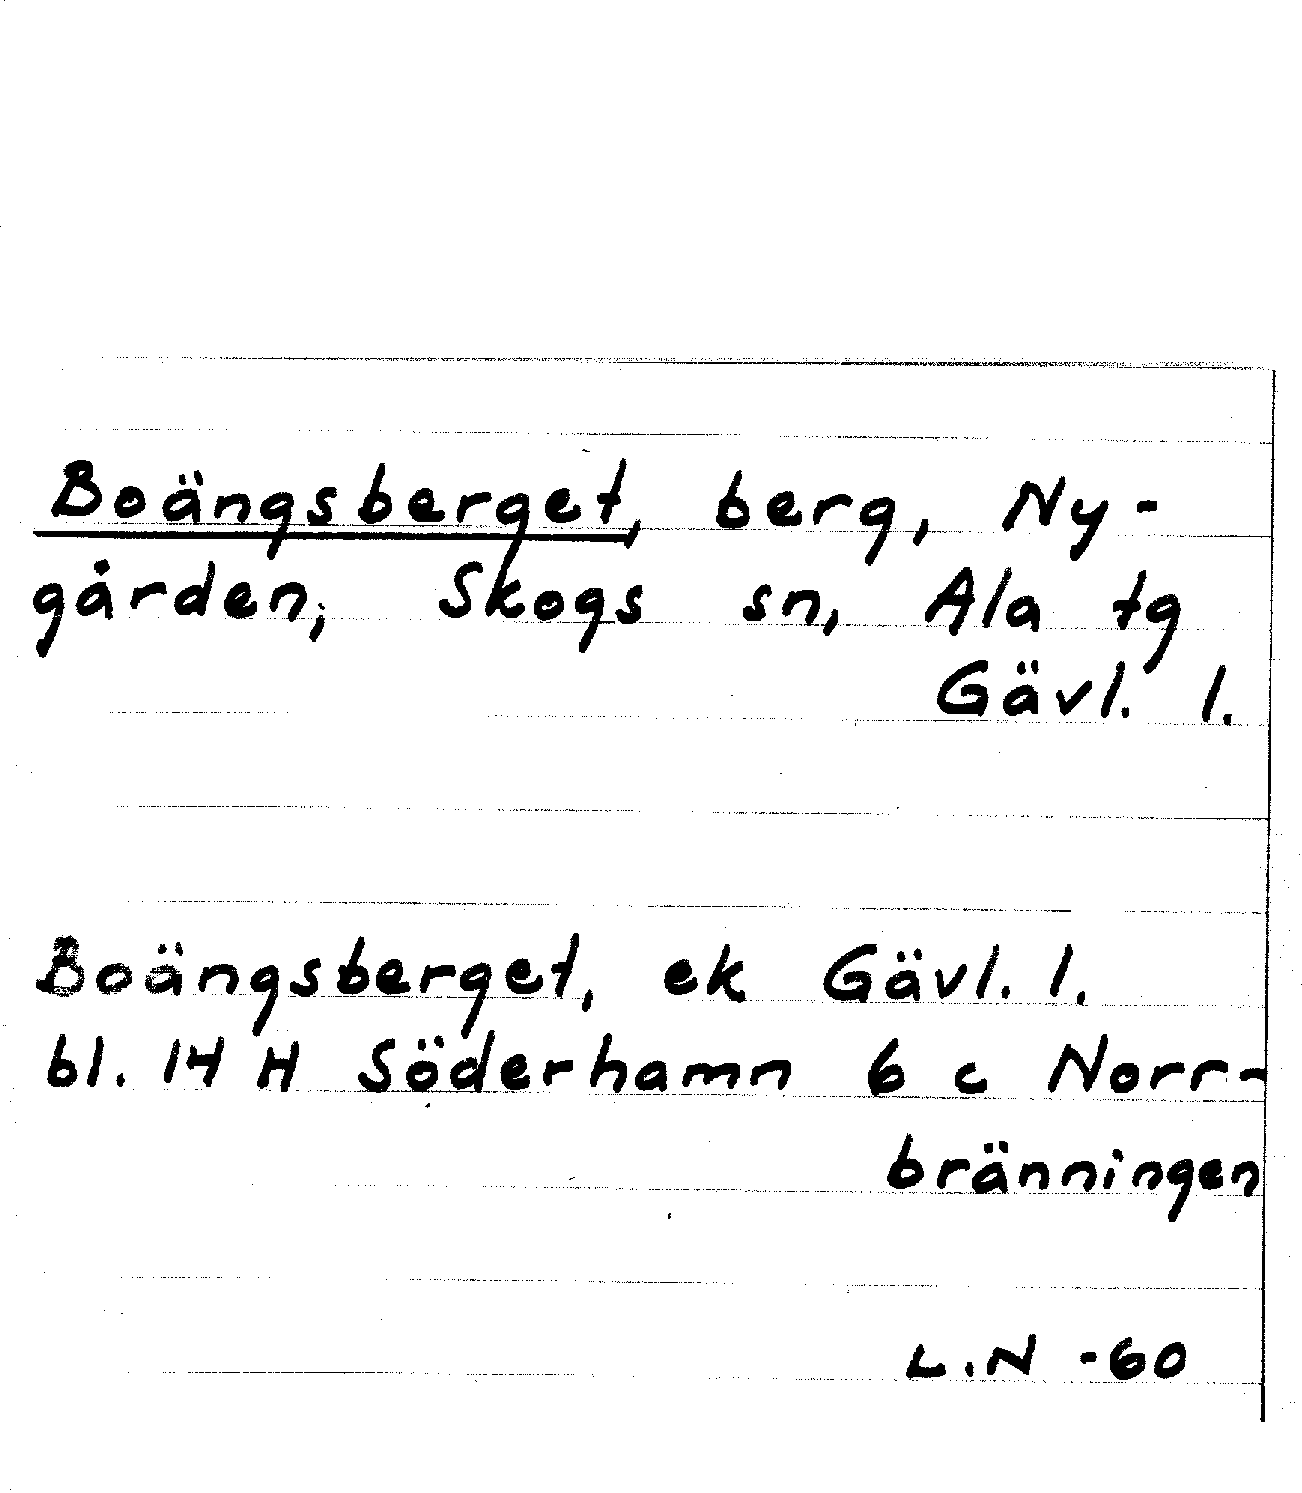 Boängsberget, berg, Ny-
gården, Skogs sn, Ala tg
Gävl. l.
Boängsberget, ek Gävl. l.
bl. 14 H Söderhamn 6 c Norr-
bränningen
L.N -60